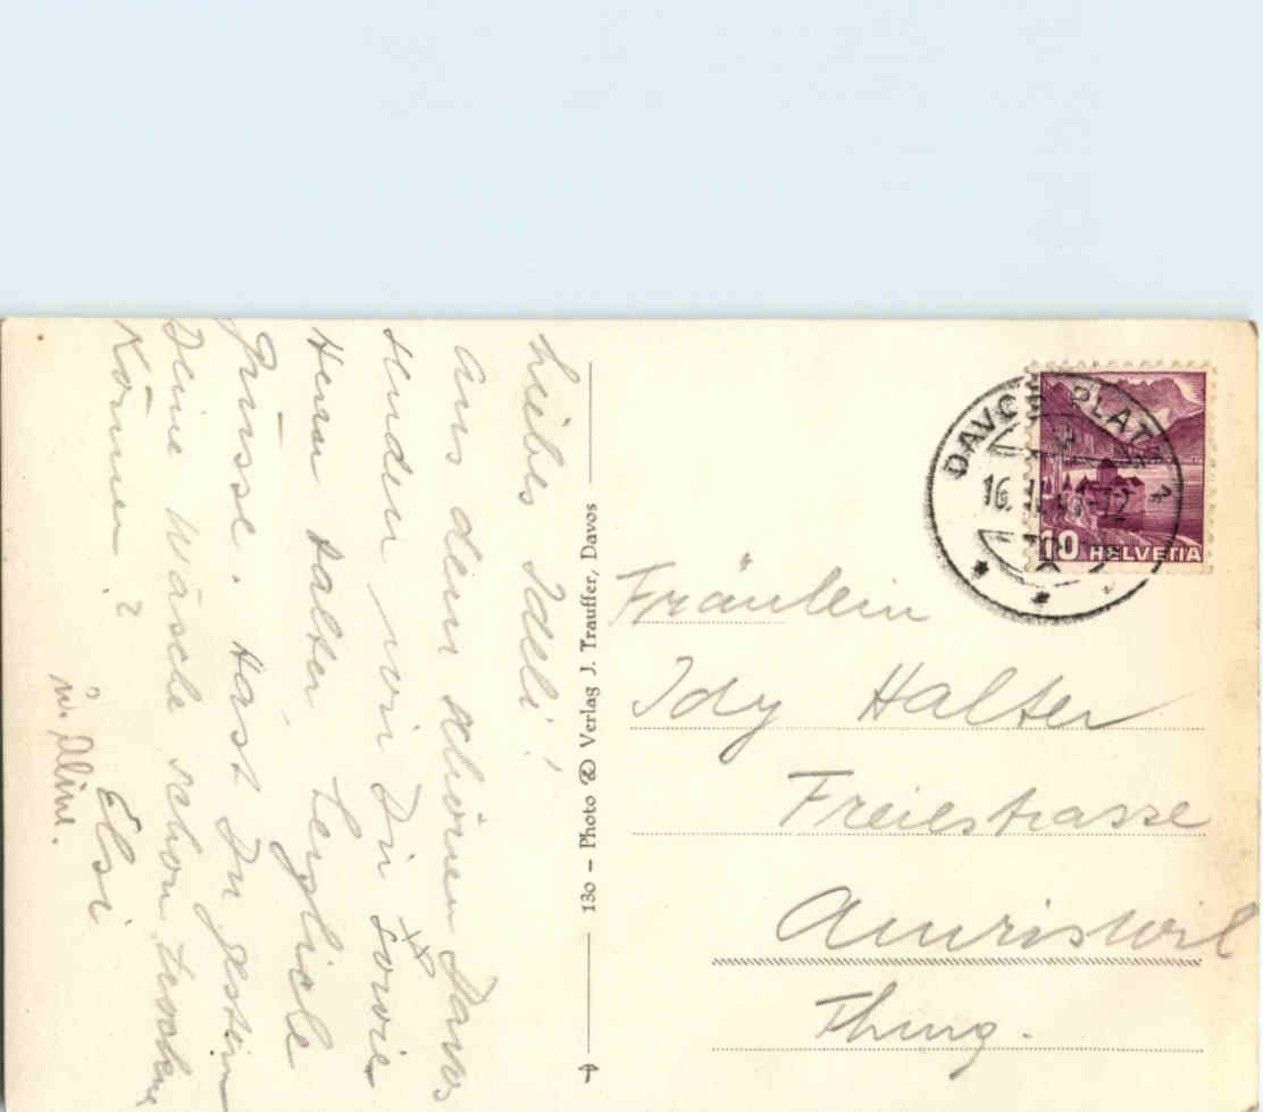 Liebes Ideli!
Aus dem schönen Davos
senden wir Dir sowie
Herrn Halter herzliche
Grüsse. Hast Du gestern
Deine Wäsche schon trocknen
Können?
Elsi
u. Aline.
130 – Photo Verlag J. Trauffer, Davos
DAVOS PLATZ
16.
10 HELVETIA
Fräulein
Idy Halter
Freiestrasse
Amriswil
Thurg.